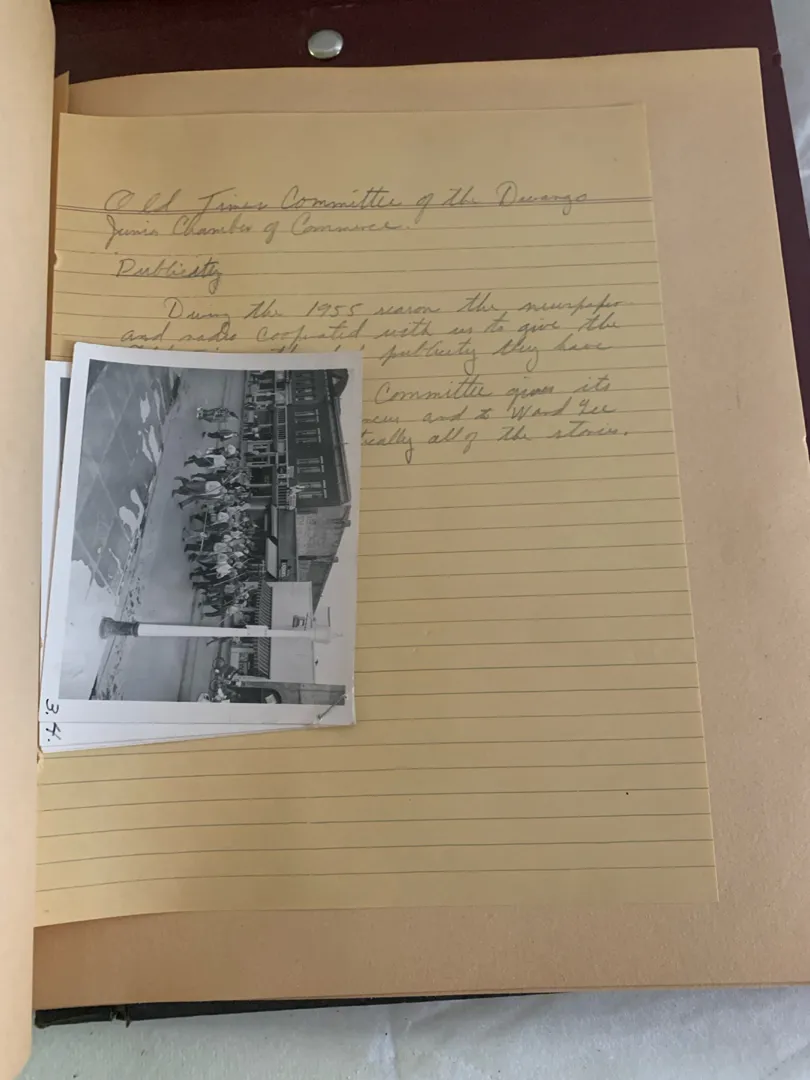 Old Timer Committee of the Durango
Junior Chamber of Commerce.
Publicity
During the 1955 season the newspaper
and radio cooperated with us to give the
publicity they have
Committee gives its
and to Ward Lee
all of the stories.
3.4.